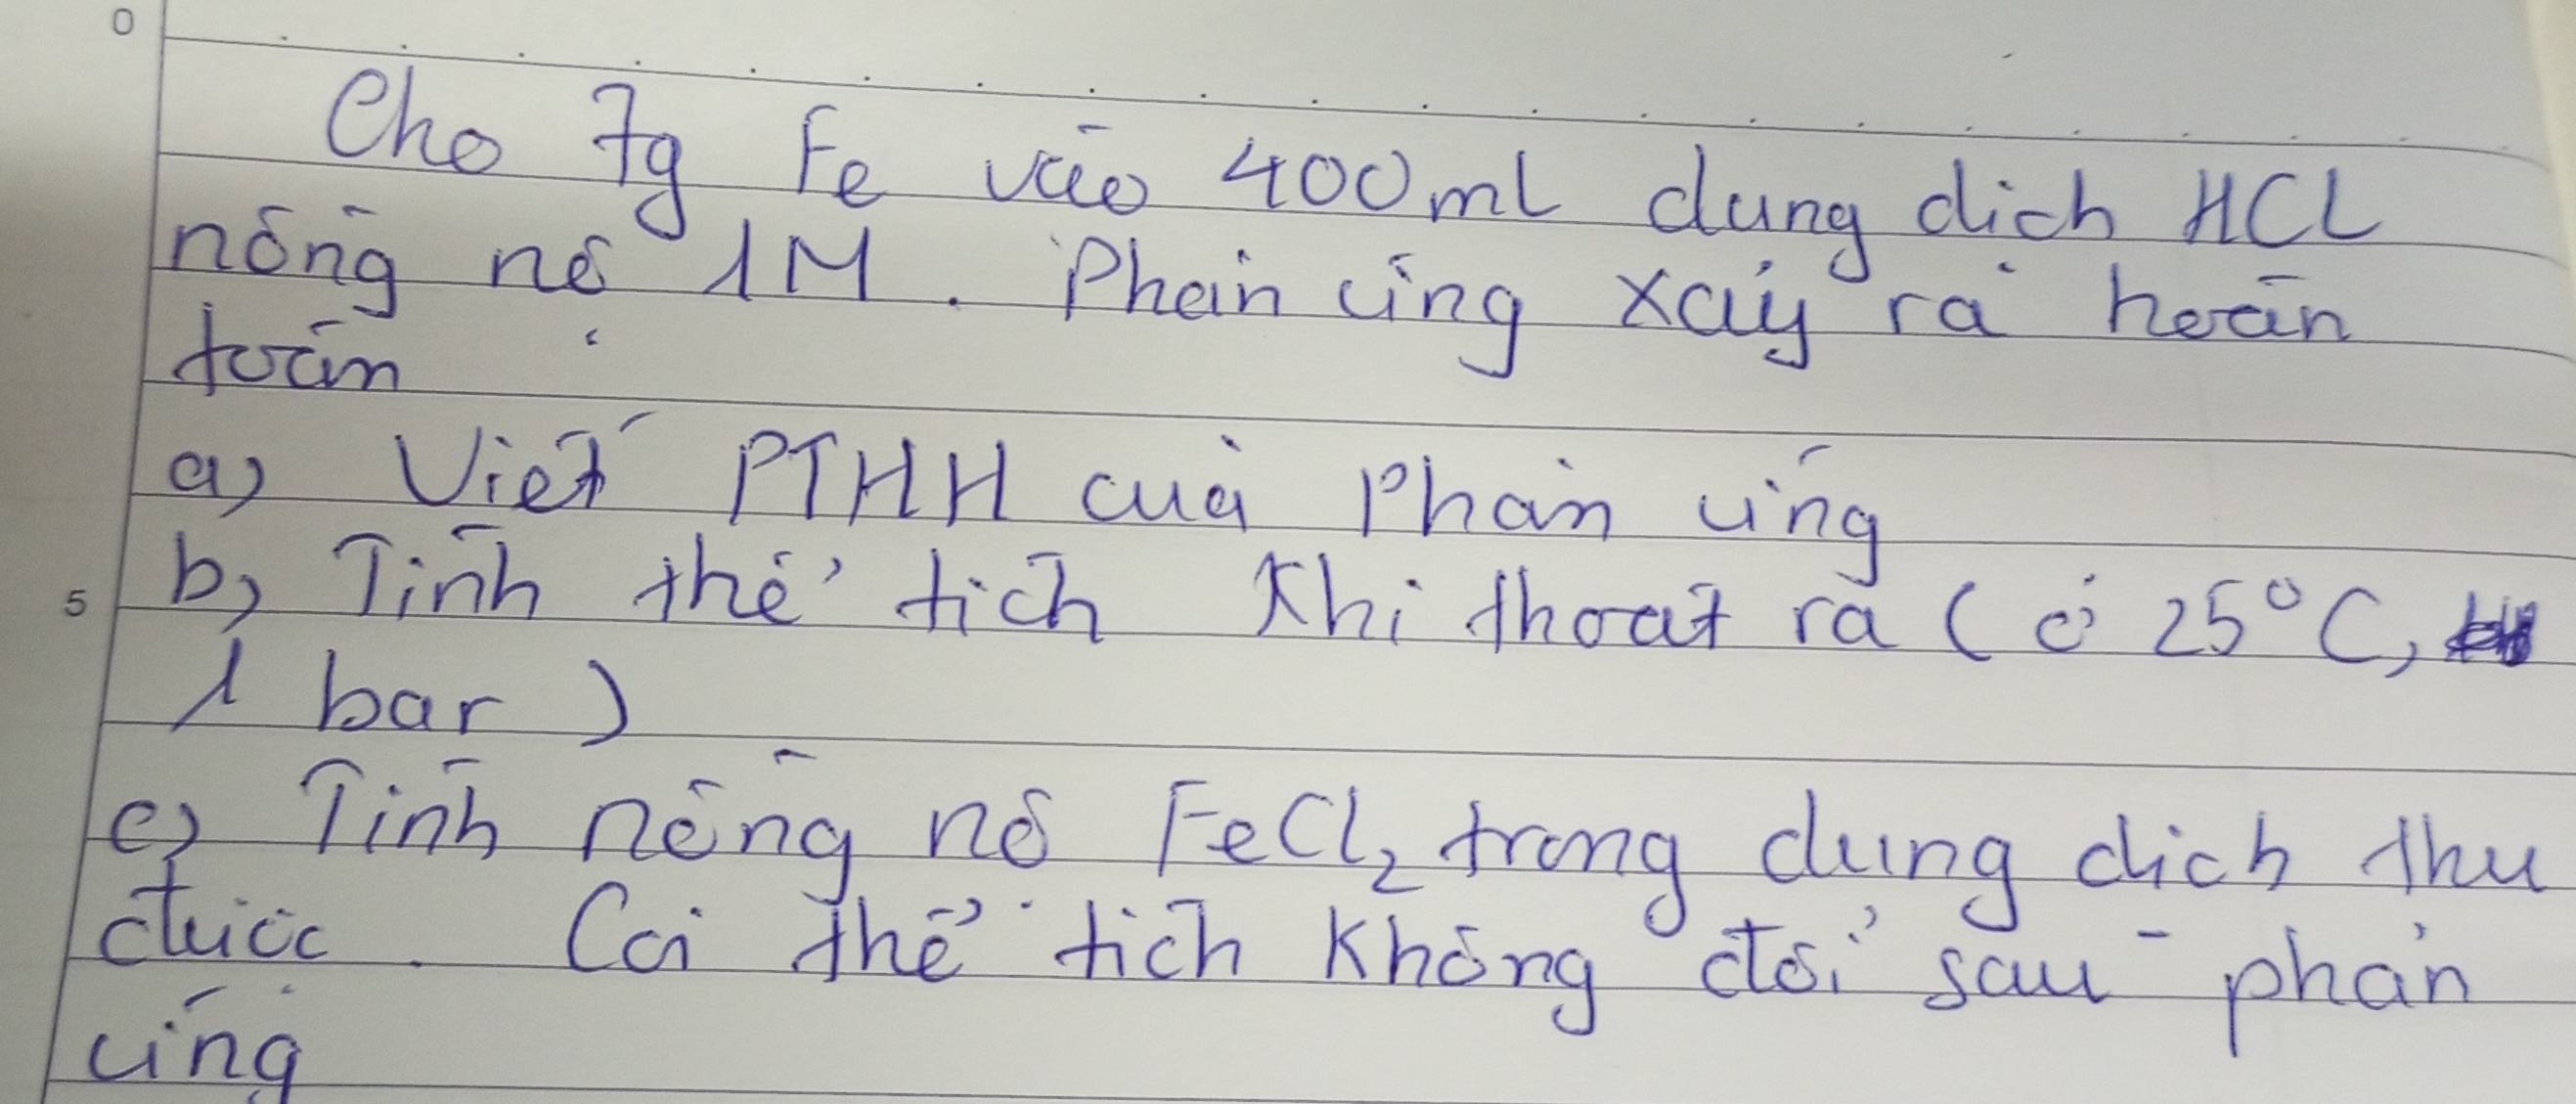 0
Cho 7g Fe vào 400ml dung dịch HCL
nồng nộ 1M. Phản ứng xảy ra hoàn
toàn
a) Viết PTHH của phản ứng
5
b) Tính thể tích khí thoát ra (ở 25°C,
1 bar)
c) Tính nồng nộ FeCl₂ trong dung dịch thu
được. Coi thể tích không đổi sau phản
ứng